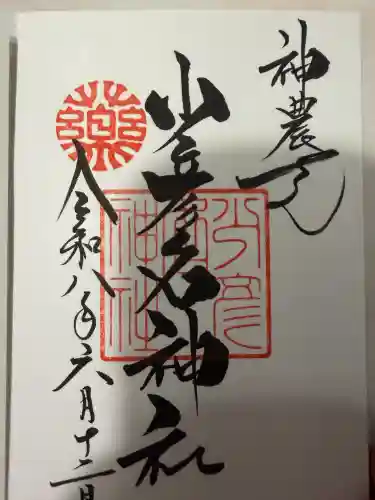 神農さん
少彦名神社
令和八年六月十二日
薬
少彦名神社